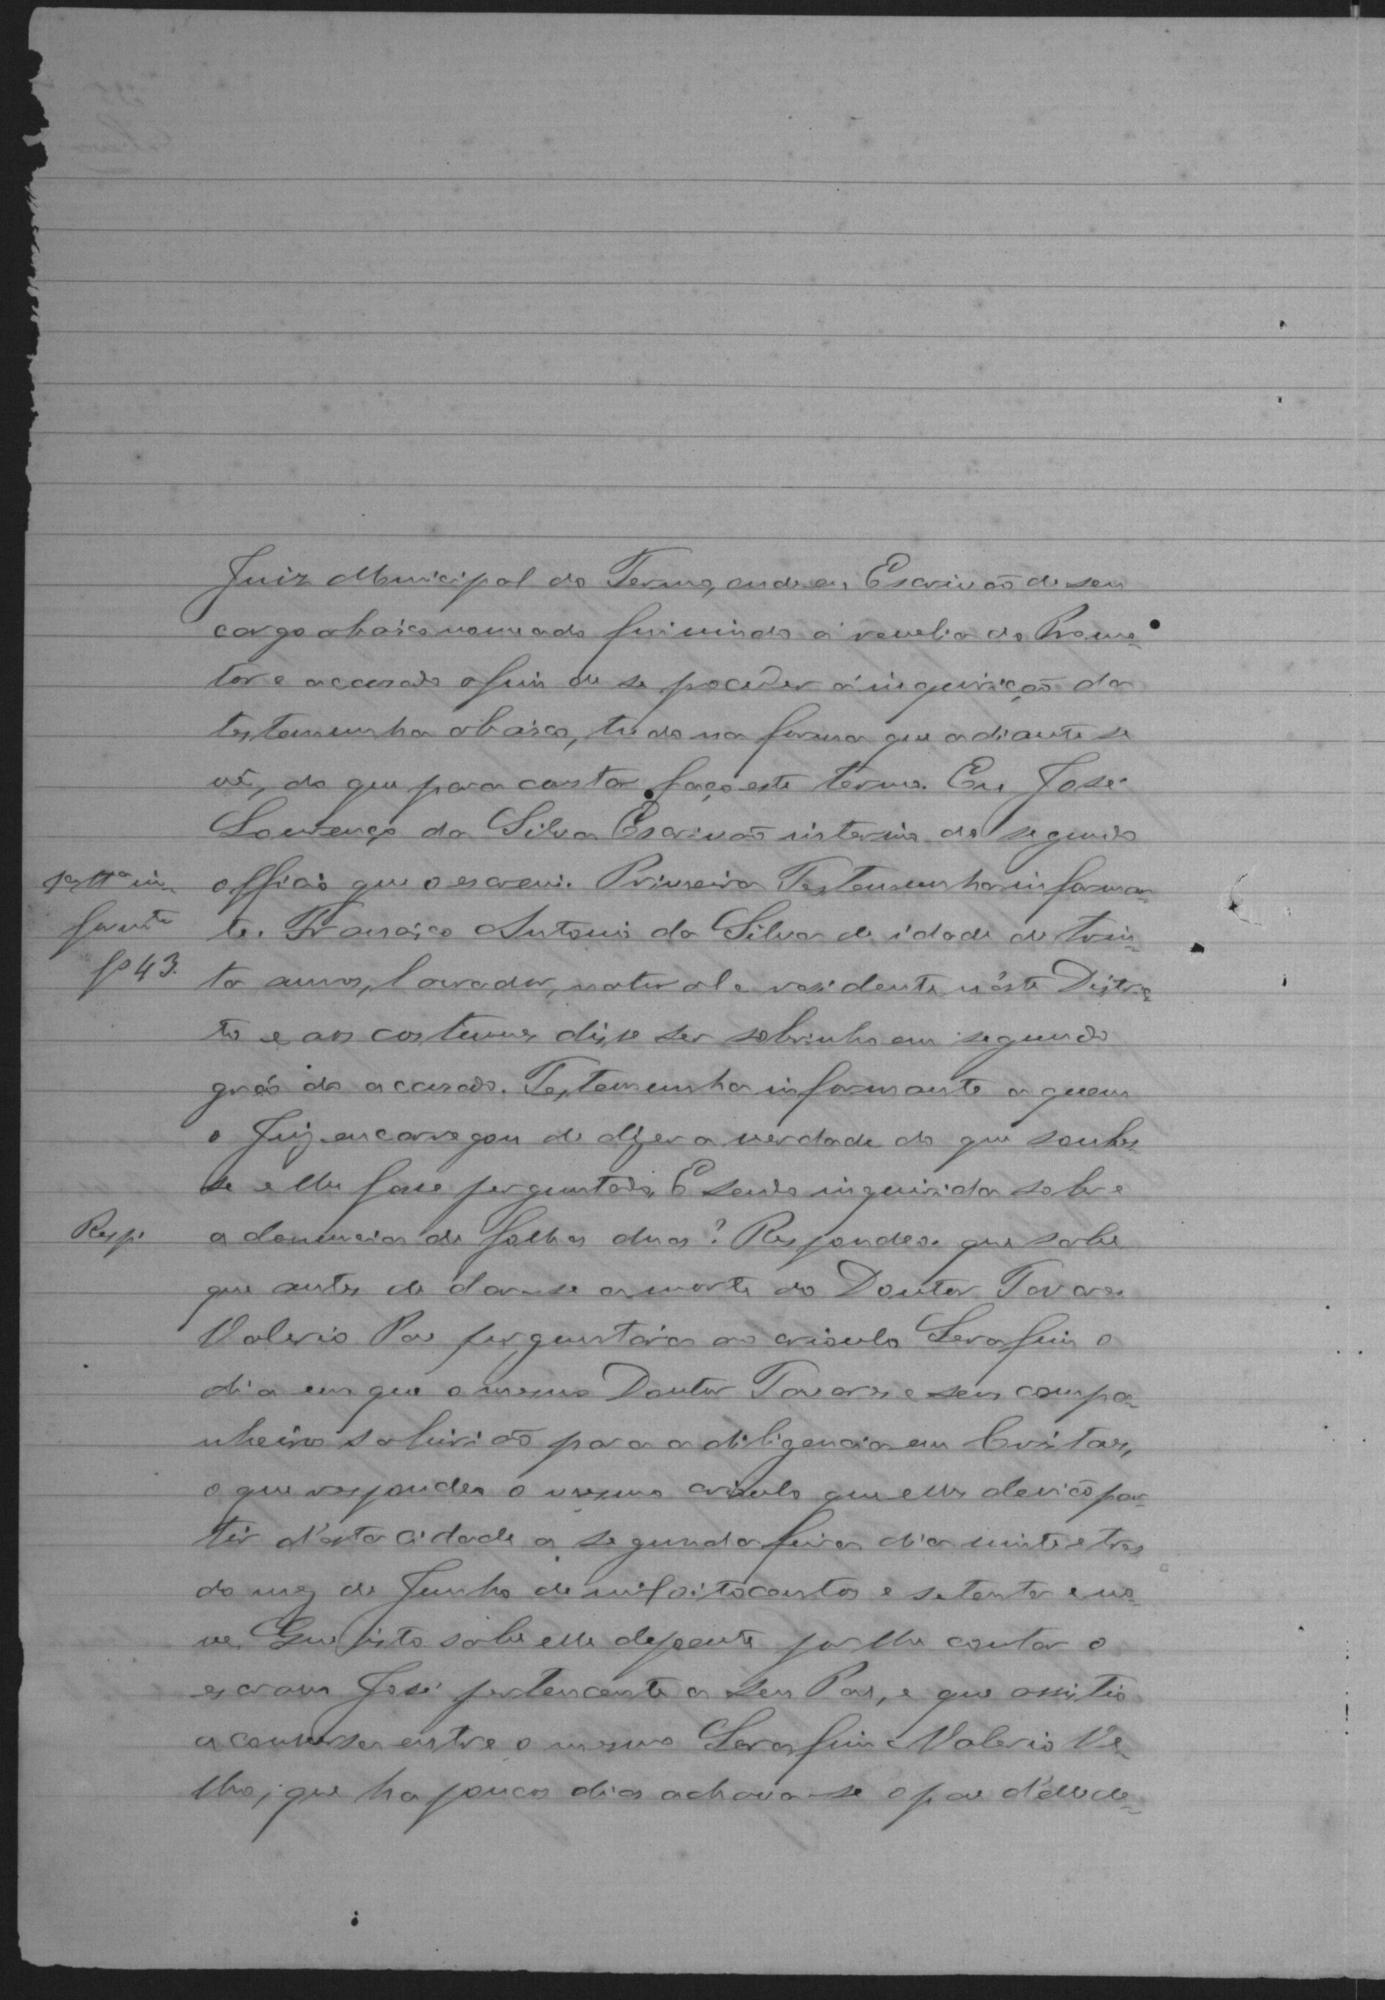 Juiz Municipal do Termo, onde eu Escrivão de seu
cargo abaixo nomeado fui vindo á revelia do Promo-
tor e accusado afim de se proceder á inquirição da
testemunha abaixo, tudo na forma que adiante se
vê, do que para constar faço este termo. Eu José
Lourenço da Silva Escrivão interino do segundo
officio que o escrevi. Primeira Testemunha informan-
te. Francisco Antonio da Silva de idade de trin-
ta annos, lavrador, natural e residente n'este Distric-
to e aos costumes disse ser sobrinho em segundo
gráo do accusado. Testemunha informante a quem
o Juiz encarregou de dizer a verdade do que soubes-
se e lhe fosse perguntado. E sendo inquirida sobre
a denuncia de folhas duas? Respondeo que sabe
que antes de dar-se a morte do Doutor Tavares
Valerio Pae perguntára ao crioulo Serafim o
dia em que o mesmo Doutor Tavares e seus compa-
nheiros sahirião para a diligencia em Cristaes,
o que respondeo o mesmo crioulo que elles devião par-
tir d'esta cidade a segunda feira dia vinte e tres
do mez de Junho de mil oitocentos e setenta e no-
ve. Que isto sabe elle depoente por lhe contar o
escravo José pertencente a seu Pae, e que assistio
a conversa entre o mesmo Serafim e Valerio Ve-
lho, que ha poucos dias achava-se o pae d'elle de-
1ª ttª in-
formte
fs 43.
Resp.